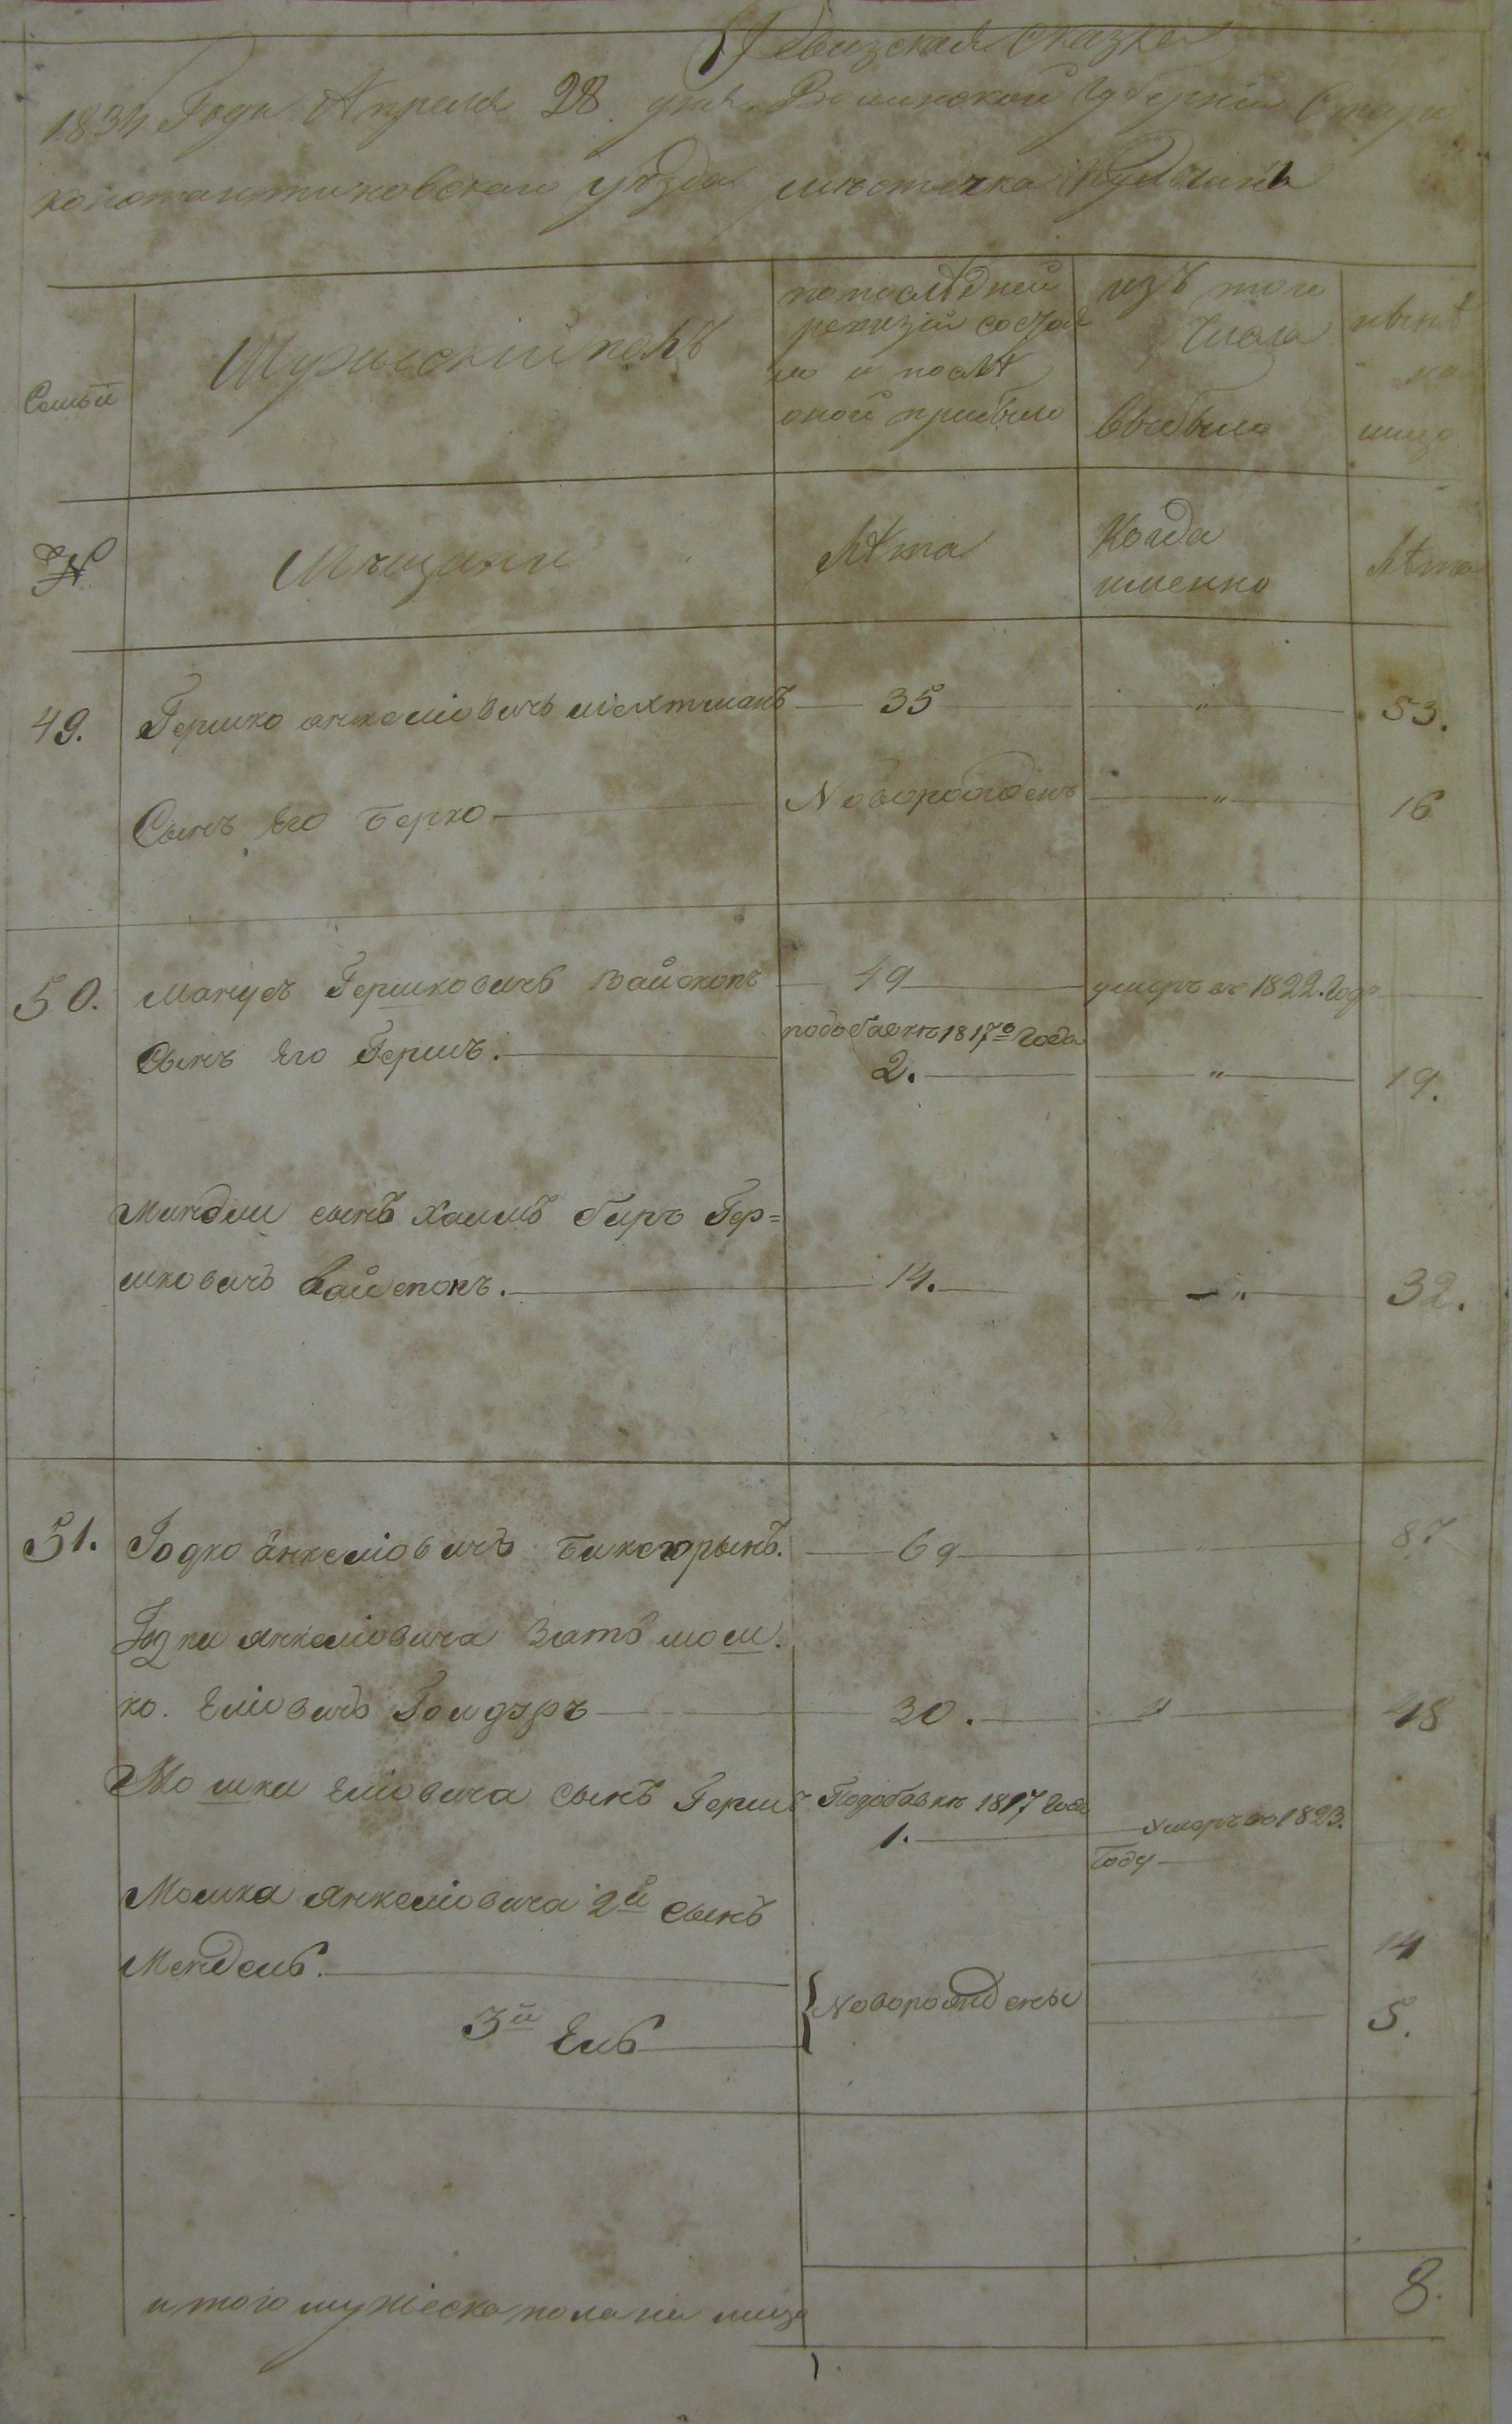 Ревизская сказка
1834 Года Апреля 28 дня Волинской Губерніи Старо
константиновскаго уѣзда мѣстечка Кульчинъ
Семьи
Мужескій полъ
по послѣдней
ревизіи состоя
ло и послѣ
оной прибыло
изъ того
числа
выбыло
нынѣ
на
лицо
№
Мѣщани
Лѣта
Когда
именно
Лѣта
49. Гершко анкеліовичъ 35 " 53.
Сынъ Его Берко Новорожденъ " 16
50. Манусъ Гершковичъ Вайскопъ 49 умеръ въ 1822. Годе
Сынъ Его Гершъ. подобавкѣ 1817го Года
2. " 19.
Мандли сынъ Хаимъ биръ Гер=
шковичъ Вайскопъ. 14. " 32.
51. Іодко анкеліовичъ 69 " 87
Іодки анкеліовича Зять мош.
ко. Еліовичъ 30. " 48
Мошки Еліовича Сынъ Гершъ Подобавкѣ 1817 Года
1. умеръ въ 1823.
Году
Мошка Янкеліовича 2й Сынъ
Мендель. 14
Новорождены
3й Ель 5.
итого мужеска пола на лицо 8.